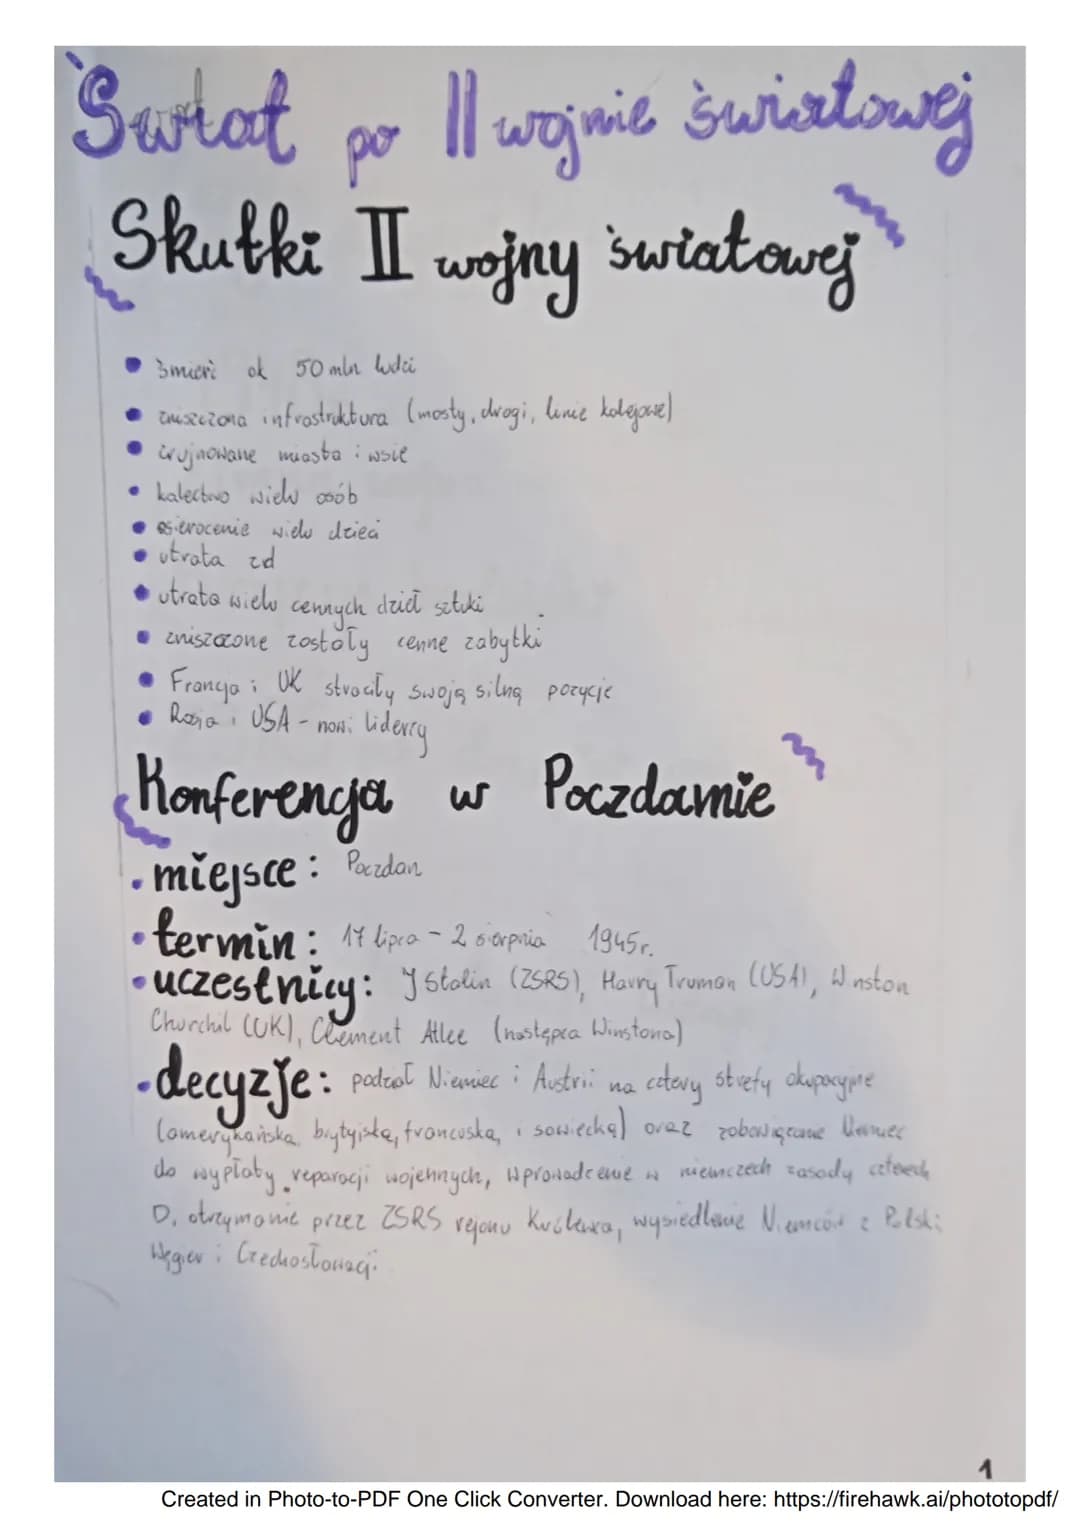 Świat po II wojnie światowej
Skutki II wojny światowej
śmierć ok 50 mln ludzi
zniszczona infrastruktura (mosty, drogi, linie kolejowe)
zrujnowane miasta i wsie
kalectwo wielu osób
osierocenie wielu dzieci
utrata zd
utrata wielu cennych dzieł sztuki
zniszczone zostały cenne zabytki
Francja i UK straciły swoją silną pozycję
Rosja i USA - nowi liderzy
Konferencja w Poczdamie
miejsce: Poczdam
termin: 17 lipca - 2 sierpnia 1945r.
uczestnicy: J Stalin (ZSRS), Harry Truman (USA), Winston
Churchil (UK), Clement Atlee (następca Winstona)
decyzje: podział Niemiec i Austrii na cztery strefy okupacyjne
(amerykańska, brytyjska, francuska, i sowiecka) oraz zobowiązanie Niemiec
do wypłaty reparacji wojennych, wprowadzenie w niemczech zasady czterech
D, otrzymanie przez ZSRS rejonu Królewca, wysiedlenie Niemców z Polski
Węgier i Czechosłowacji.
1
Created in Photo-to-PDF One Click Converter. Download here: https://firehawk.ai/phototopdf/